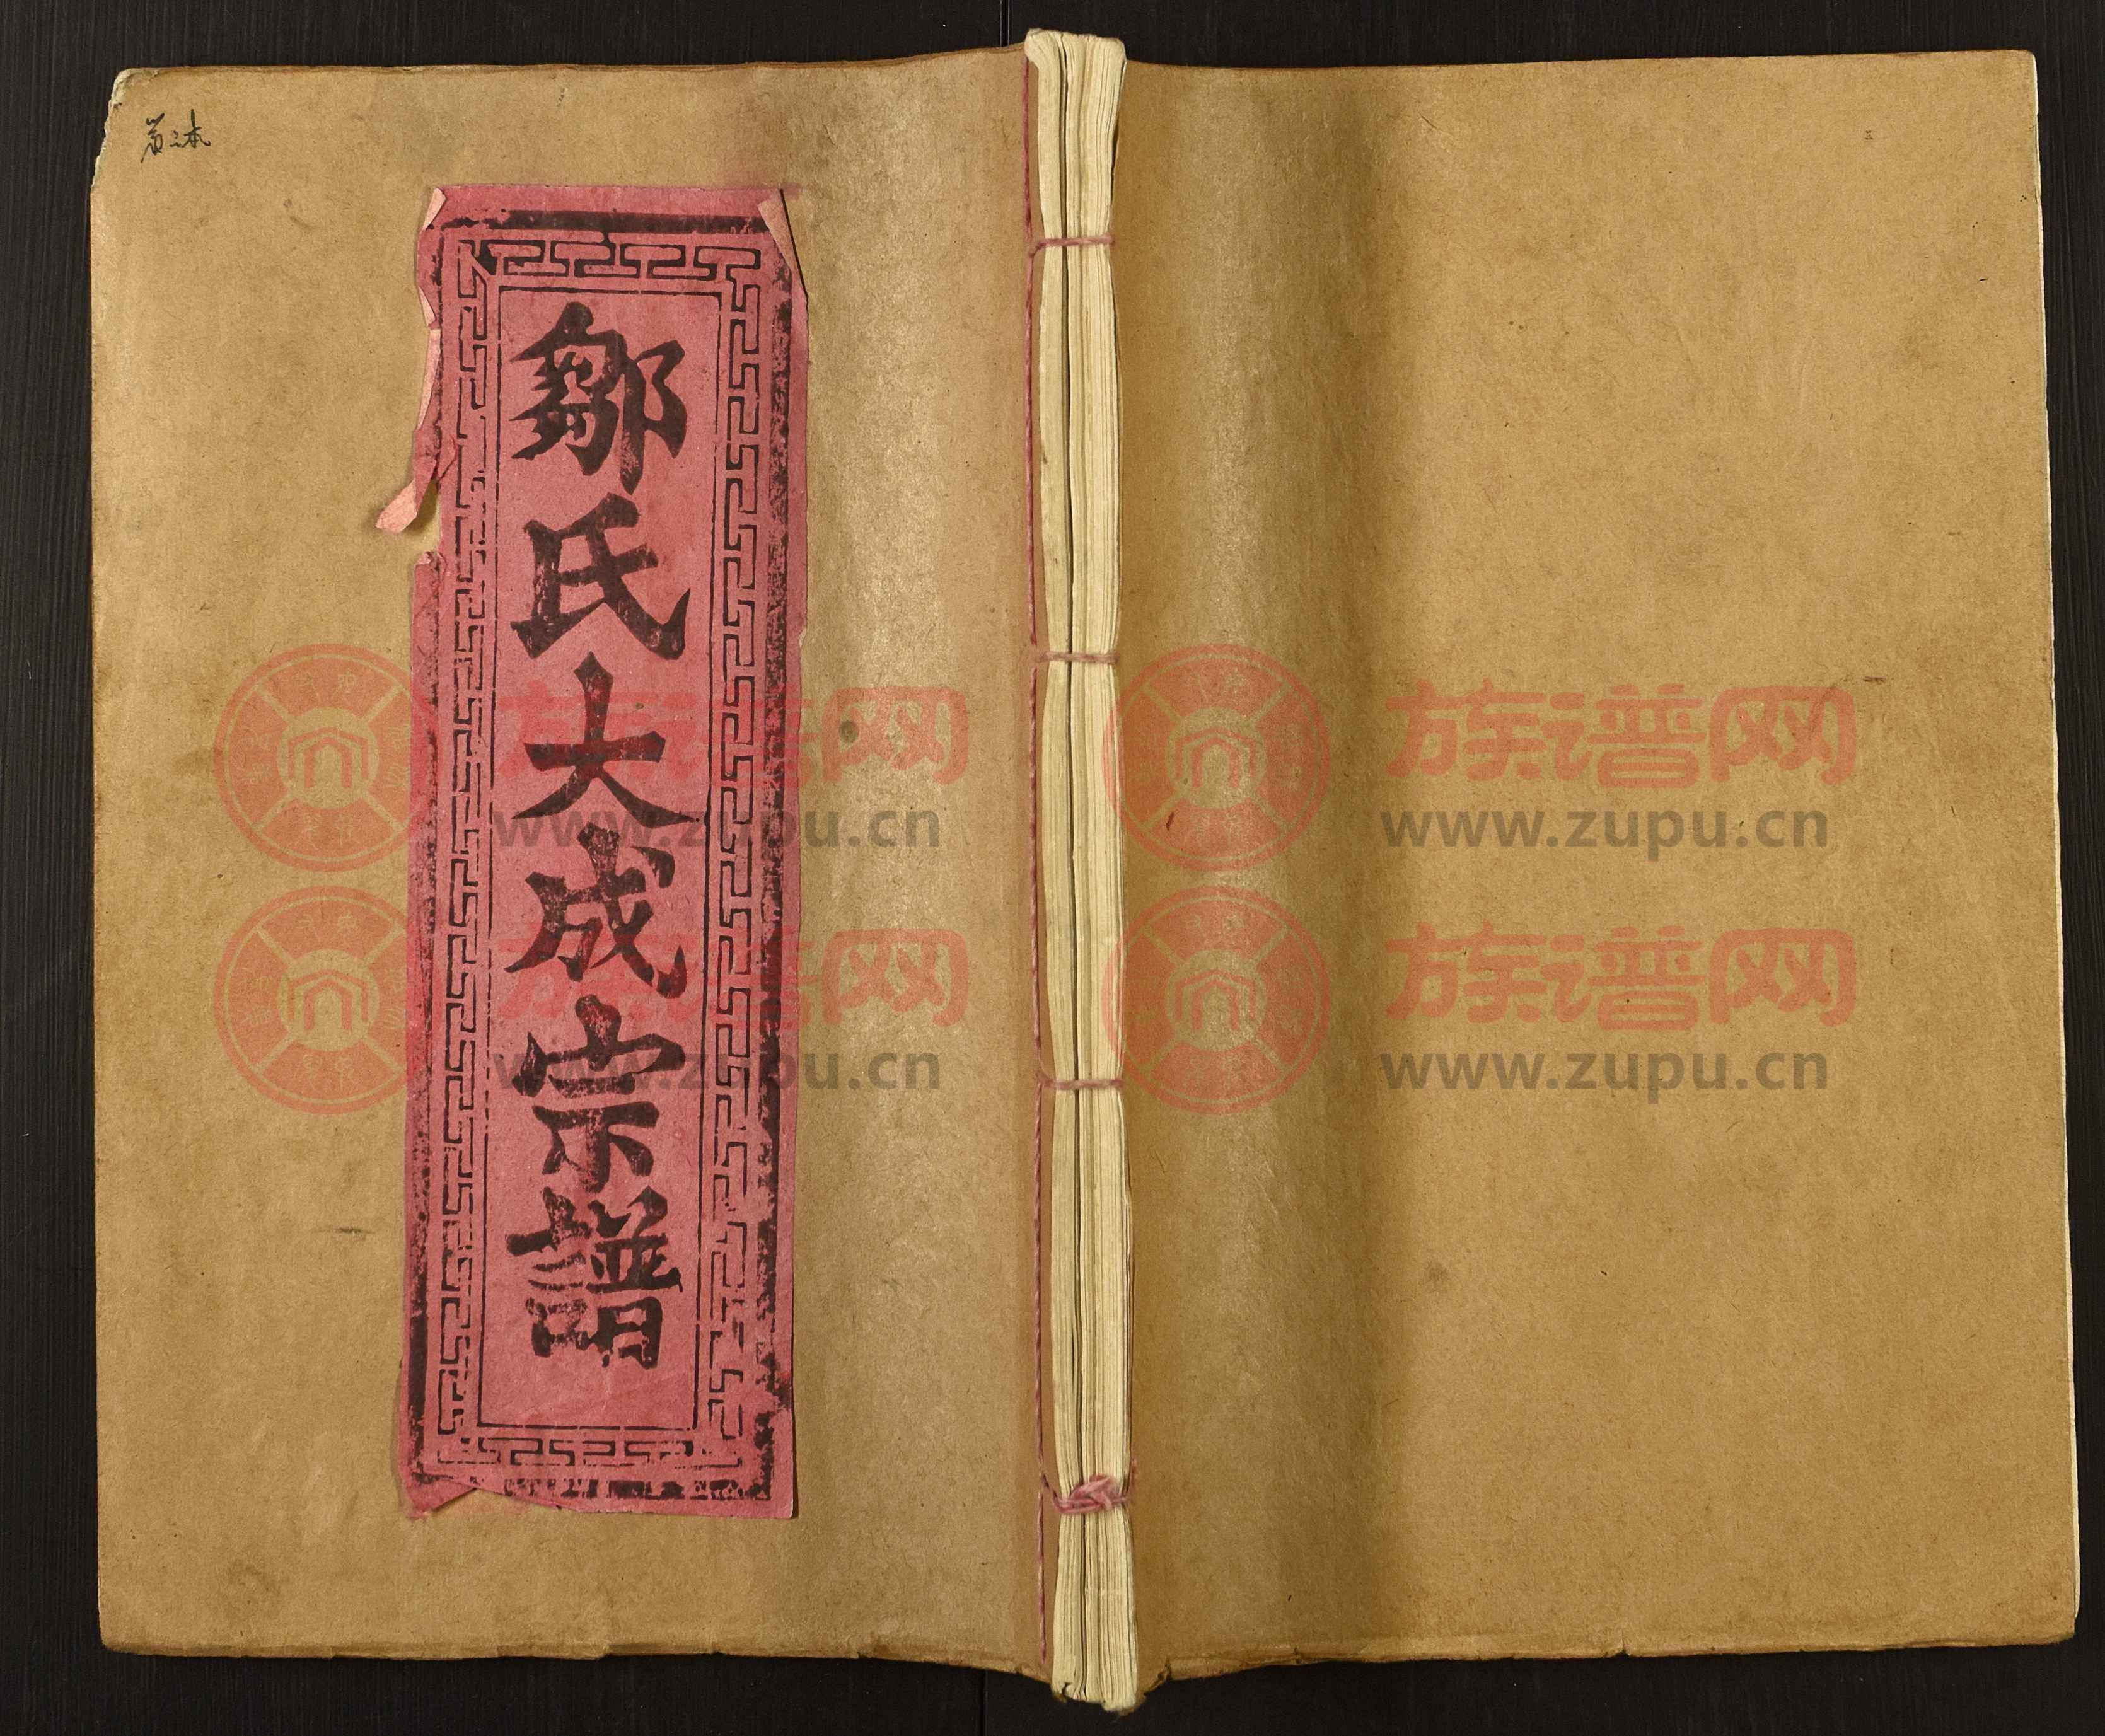 第二本
鄒氏大成宗譜
族谱网
www.zupu.cn
族谱网
www.zupu.cn
族谱网
www.zupu.cn
族谱网
www.zupu.cn